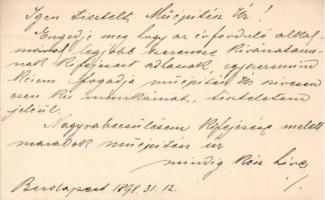 Igen tisztelt Műépítész Úr!
Engedje meg hogy az évforduló alkal-
mával legjobb szerencse kivánataim-
nak kifejezést adhassak, egyszersmind
kérem fogadja műépítész úr szivesen
ezen kis munkámat, tiszteletem
jeléül.
Nagyrabecsülésem kifejezése mellett
maradok műépítész úr
mindig kész híve
Budapest 1898. 31. 12.